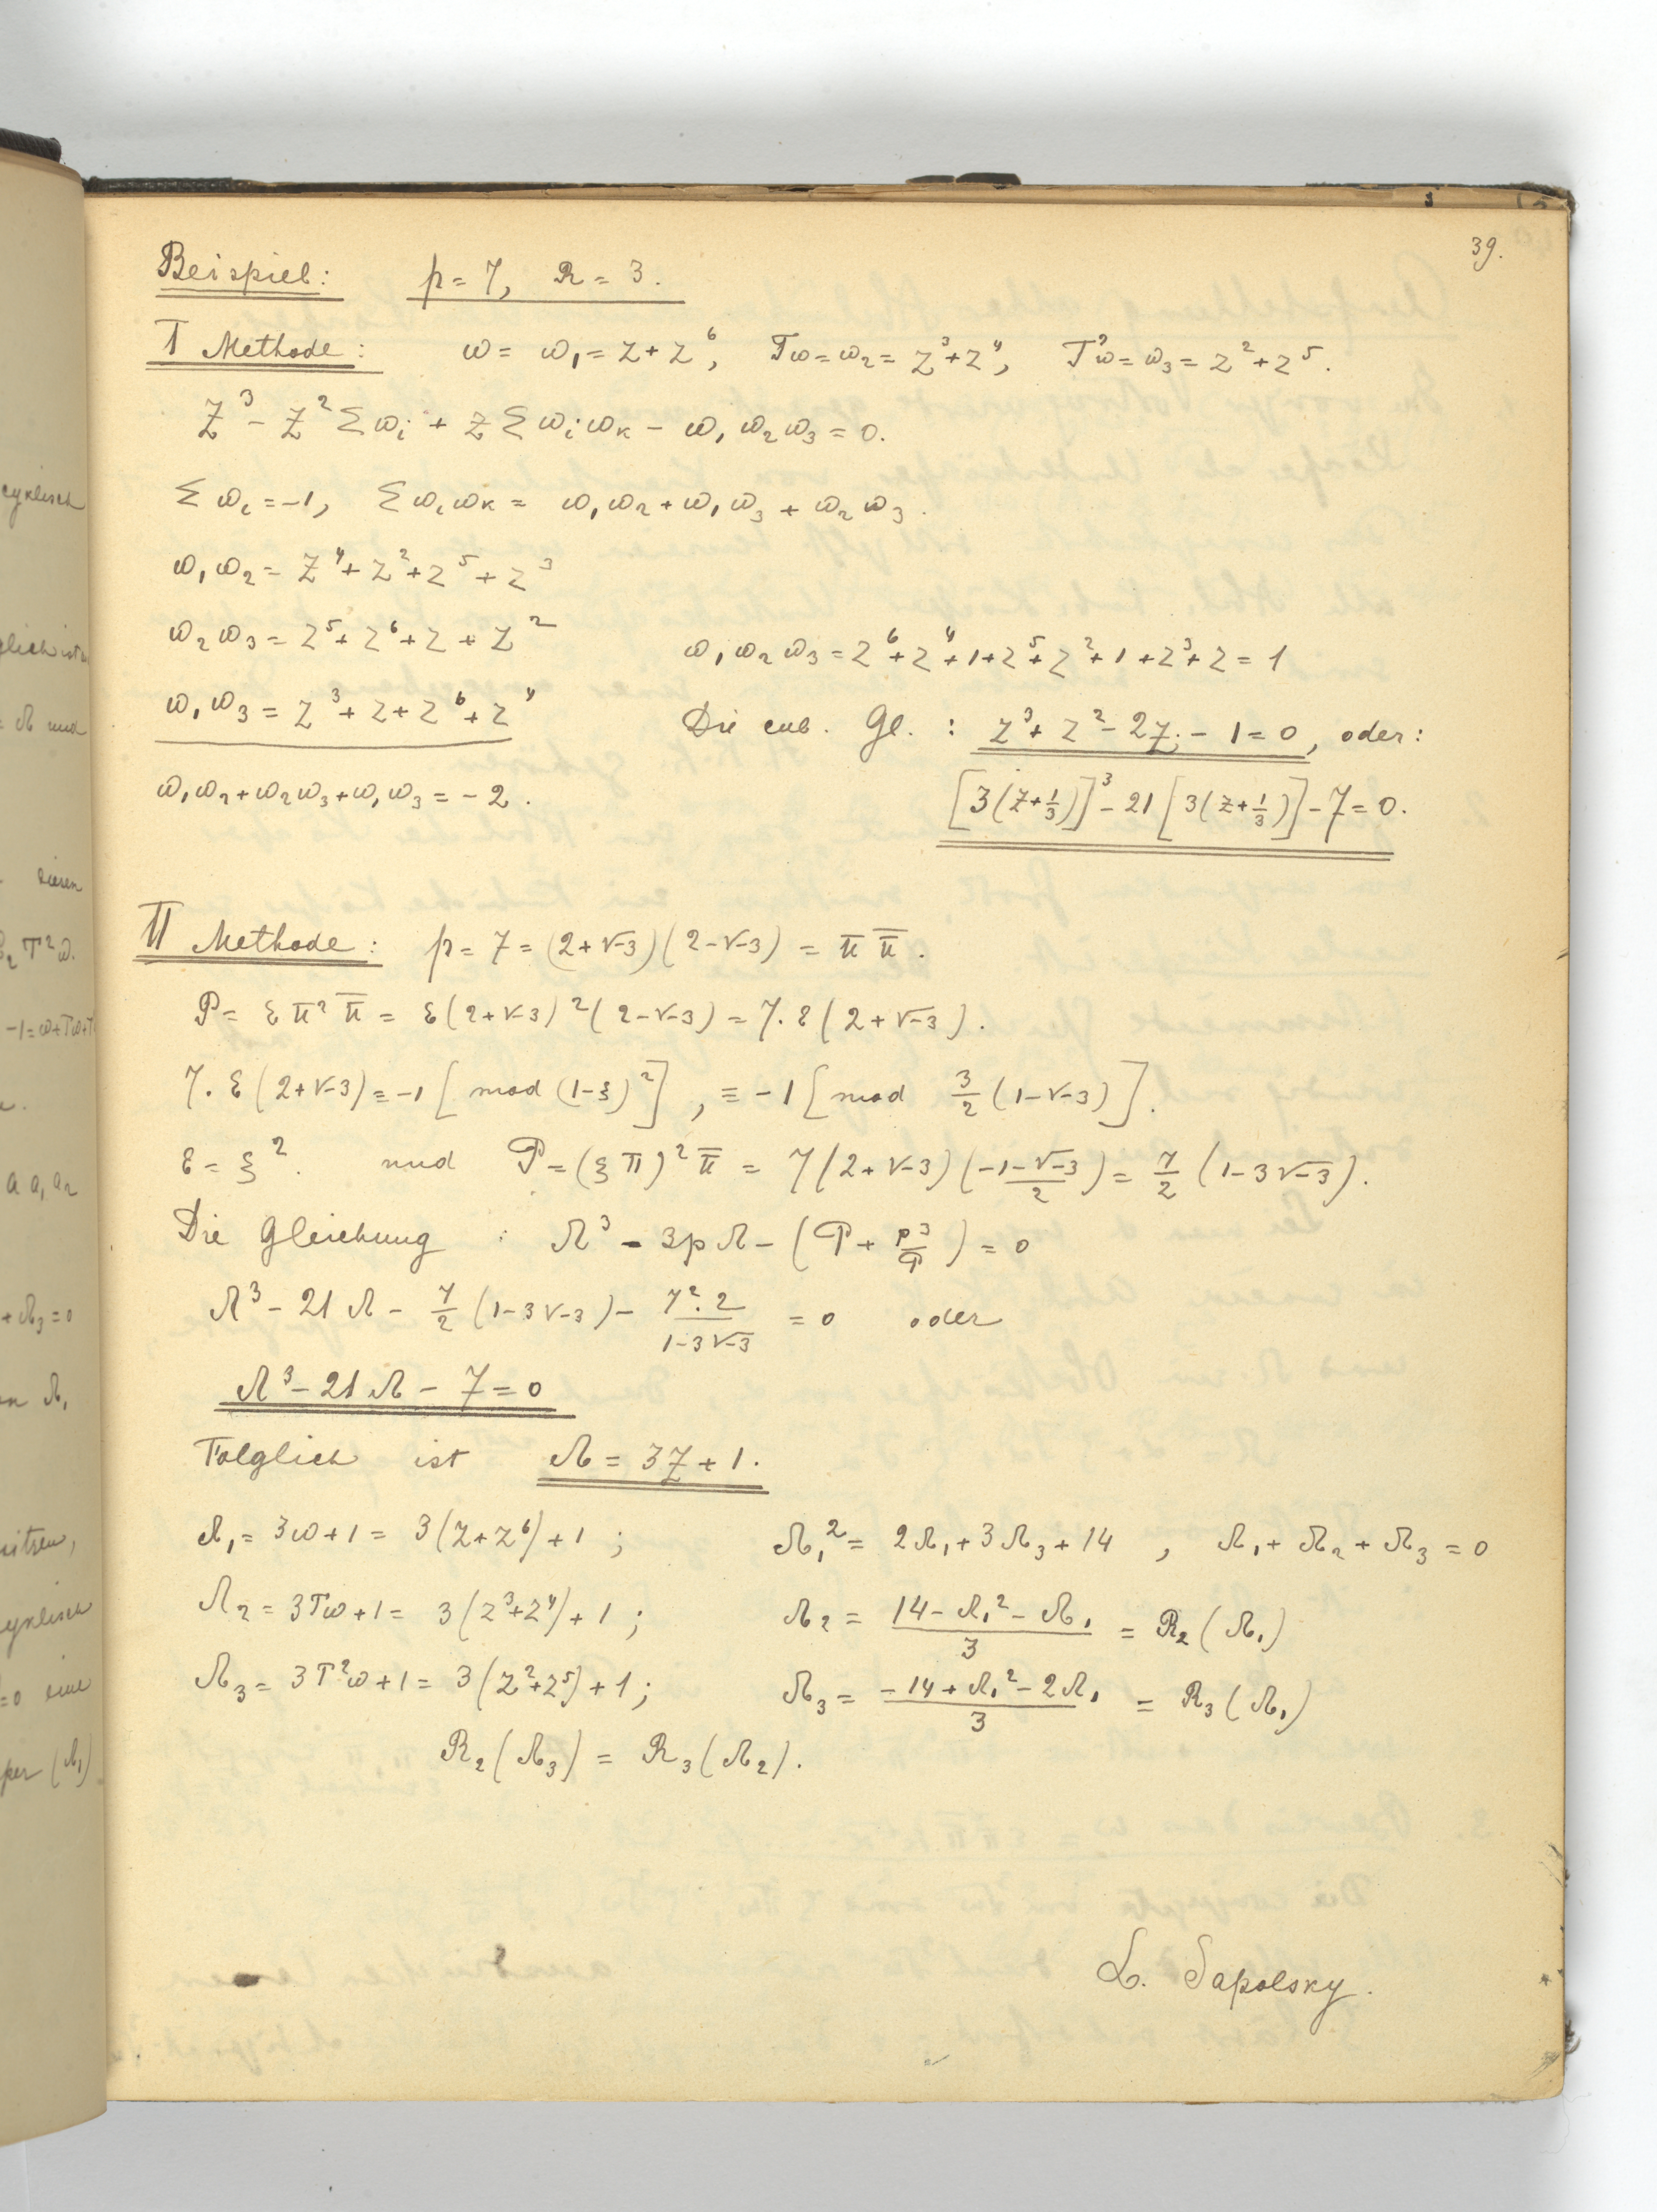 39.
Beispiel: p = 7, R = 3.
I Methode: ω = ω₁ = Z + Z⁶, Tω = ω₂ = Z³ + Z⁴, T²ω = ω₃ = Z² + Z⁵.
Z³ – Z² Σωᵢ + Z Σωᵢωₖ – ω₁ω₂ω₃ = 0.
Σωᵢ = –1, Σωᵢωₖ = ω₁ω₂ + ω₁ω₃ + ω₂ω₃.
ω₁ω₂ = Z⁴ + Z² + Z⁵ + Z³
ω₂ω₃ = Z⁵ + Z⁶ + Z + Z²
ω₁ω₃ = Z³ + Z + Z⁶ + Z⁴
ω₁ω₂ + ω₂ω₃ + ω₁ω₃ = –2.
ω₁ω₂ω₃ = Z⁶ + Z⁴ + 1 + Z⁵ + Z² + 1 + Z³ + Z = 1
Die cub. Gl.: Z³ + Z² – 2Z – 1 = 0, oder:
[3(Z + 1/3)]³ – 21 [3(Z + 1/3)] – 7 = 0.
II Methode: p = 7 = (2 + √-3)(2 – √-3) = π π̅.
P = ε π² π̅ = ε(2 + √-3)²(2 – √-3) = 7. ε(2 + √-3).
7. ε(2 + √-3) ≡ –1 [mod (1–ξ)²], ≡ –1 [mod 3/2 (1 – √-3)].
ε = ξ². und P = (ξπ)² π̅ = 7(2 + √-3)(–1–√-3/2) = 7/2 (1 – 3√-3).
Die Gleichung : Λ³ – 3pΛ – (P + p³/P) = 0
Λ³ – 21Λ – 7/2 (1 – 3√-3) – 7².2/1–3√-3 = 0 oder
Λ³ – 21Λ – 7 = 0
Folglich ist Λ = 3Z + 1.
Λ₁ = 3ω + 1 = 3(Z + Z⁶) + 1 ; Λ₁² = 2Λ₁ + 3Λ₃ + 14 , Λ₁ + Λ₂ + Λ₃ = 0
Λ₂ = 3Tω + 1 = 3(Z³ + Z⁴) + 1 ; Λ₂ = 14 – Λ₁² – Λ₁/3 = R₂(Λ₁)
Λ₃ = 3T²ω + 1 = 3(Z² + Z⁵) + 1 ; Λ₃ = –14 + Λ₁² – 2Λ₁/3 = R₃(Λ₁)
R₂(Λ₃) = R₃(Λ₂).
L. Sapolsky.